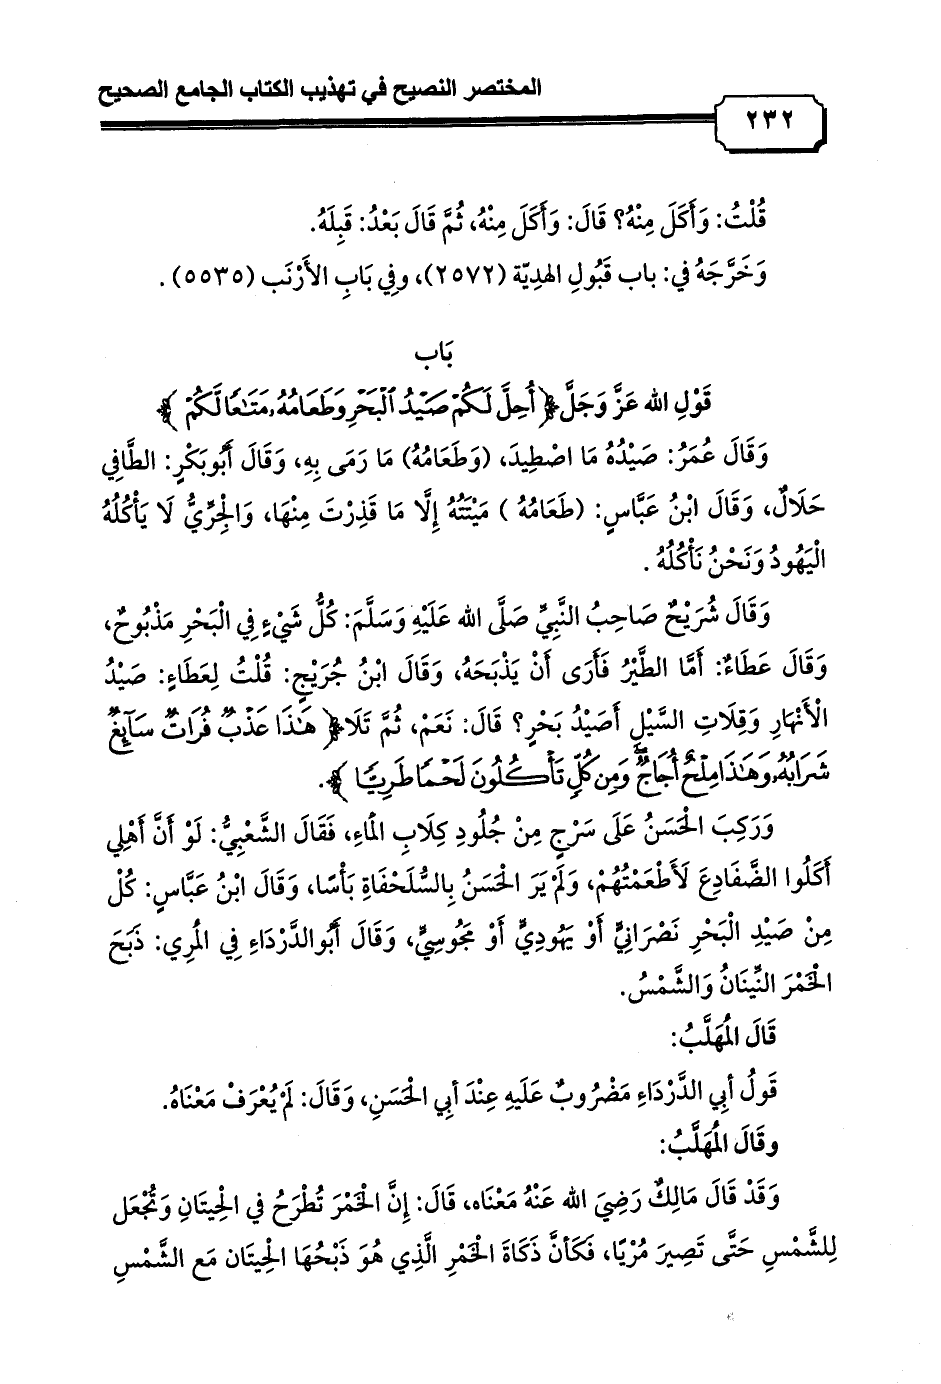 المختصر النصيح في تهذيب الكتاب الجامع الصحيح
٢٣٢
قُلْتُ: وَأَكَلَ مِنْهُ؟ قَالَ: وَأَكَلَ مِنْهُ، ثُمَّ قَالَ بَعْدُ: قَبِلَهُ.
وَخَرَّجَهُ في: باب قَبُولِ الهدِيّة (٢٥٧٢)، وفِي بَابِ الأَرْنَب (٥٥٣٥).
بَاب
قَوْلِ الله عَزَّ وَجَلَّ ﴿أُحِلَّ لَكُمْ صَيْدُ ٱلْبَحْرِ وَطَعَامُهُۥ مَتَٰعًا لَّكُمْ﴾
وَقَالَ عُمَرُ: صَيْدُهُ مَا اصْطِيدَ، (وَطَعَامُهُ) مَا رَمَى بِهِ، وَقَالَ أَبُوبَكْرٍ: الطَّافِي
حَلَالٌ، وَقَالَ ابْنُ عَبَّاسٍ: (طَعَامُهُ) مَيْتَتُهُ إِلَّا مَا قَذِرْتَ مِنْهَا، وَالْجِرِّيُّ لَا يَأْكُلُهُ
الْيَهُودُ وَنَحْنُ نَأْكُلُهُ.
وَقَالَ شُرَيْحٌ صَاحِبُ النَّبِيِّ صَلَّى الله عَلَيْهِ وَسَلَّمَ: كُلُّ شَيْءٍ فِي الْبَحْرِ مَذْبُوحٌ،
وَقَالَ عَطَاءٌ: أَمَّا الطَّيْرُ فَأَرَى أَنْ يَذْبَحَهُ، وَقَالَ ابْنُ جُرَيْجٍ: قُلْتُ لِعَطَاءٍ: صَيْدُ
الْأَنْهَارِ وَقِلَاتِ السَّيْلِ أَصَيْدُ بَحْرٍ؟ قَالَ: نَعَمْ، ثُمَّ تَلَا ﴿هَٰذَا عَذْبٌ فُرَاتٌ سَآئِغٌ
شَرَابُهُۥ وَهَٰذَا مِلْحٌ أُجَاجٌ ۖ وَمِن كُلٍّ تَأْكُلُونَ لَحْمًا طَرِيًّا﴾.
وَرَكِبَ الْحَسَنُ عَلَى سَرْجٍ مِنْ جُلُودِ كِلَابِ الْمَاءِ، فَقَالَ الشَّعْبِيُّ: لَوْ أَنَّ أَهْلِي
أَكَلُوا الضَّفَادِعَ لَأَطْعَمْتُهُمْ، وَلَمْ يَرَ الْحَسَنُ بِالسُّلَحْفَاةِ بَأْسًا، وَقَالَ ابْنُ عَبَّاسٍ: كُلْ
مِنْ صَيْدِ الْبَحْرِ نَصْرَانِيٍّ أَوْ يَهُودِيٍّ أَوْ مَجُوسِيٍّ، وَقَالَ أَبُوالدَّرْدَاءِ فِي الْمُرِي: ذَبَحَ
الْخَمْرَ النِّينَانُ وَالشَّمْسُ.
قَالَ الْمُهَلَّبُ:
قَولُ أبِي الدَّرْدَاءِ مَضْرُوبٌ عَلَيهِ عِنْدَ أبِي الْحَسَنِ، وَقَالَ: لَمْ يُعْرَفْ مَعْنَاهُ.
وقَالَ الْمُهَلَّبُ:
وَقَدْ قَالَ مَالِكٌ رَضِيَ الله عَنْهُ مَعْنَاه، قَالَ: إنَّ الْخَمْرَ تُطْرَحُ فِي الْحِيتَانِ وَتُجْعَل
لِلشَّمْسِ حَتَّى تَصِيرَ مُرْيًا، فَكَأنَّ ذَكَاةَ الْخَمْرِ الَّذِي هُوَ ذَبْحُهَا الْحِيتَان مَع الشَّمْسِ